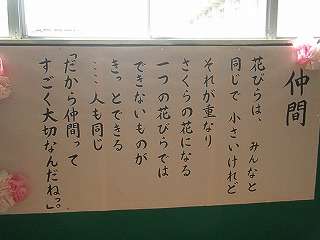 仲間
花びらは、みんなと
同じで 小さいけれど
それが重なり
さくらの花になる
一つの花びらでは
できないものが
きっとできる
……人も同じ
「だから仲間って
すごく大切なんだねっ。」